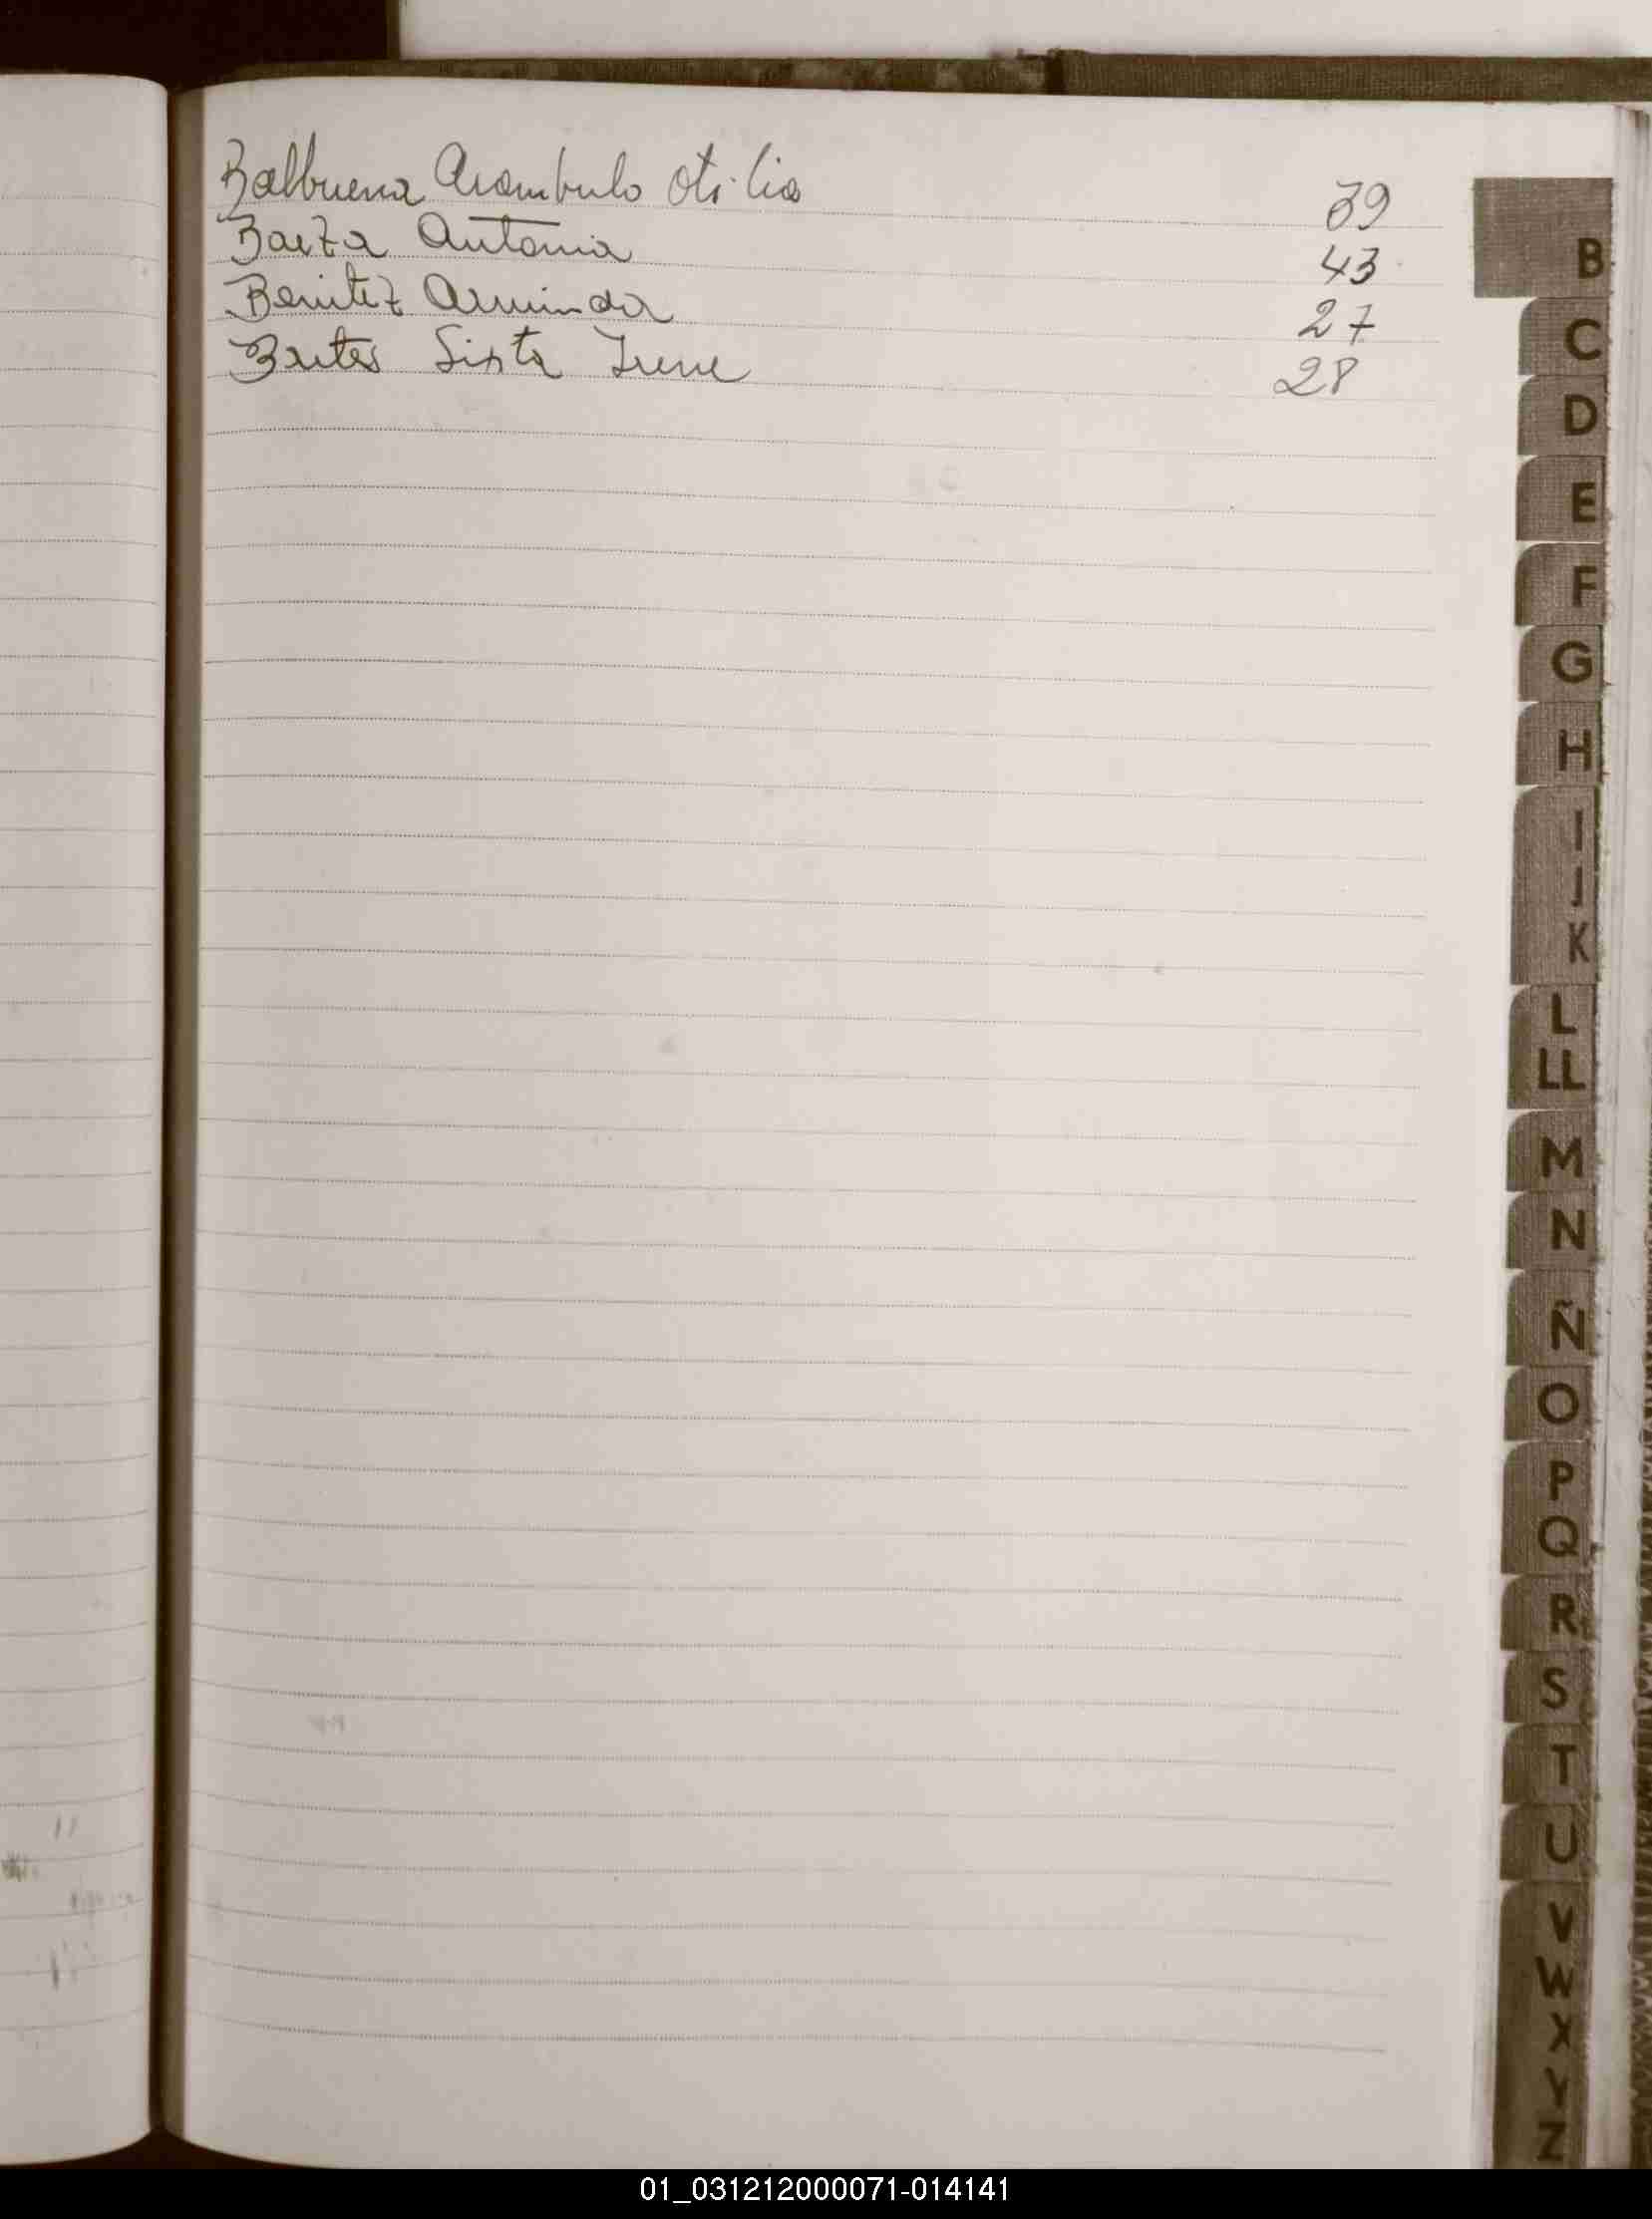 Balbuena Arambulo Otilia 39
Baeza Antonia 43
Benitez Arminda 27
Brites Sixta Irene 28
B
C
D
E
F
G
H
I
J
K
L
LL
M
N
Ñ
O
P
Q
R
S
T
U
V
W
X
Y
Z
01_031212000071-014141